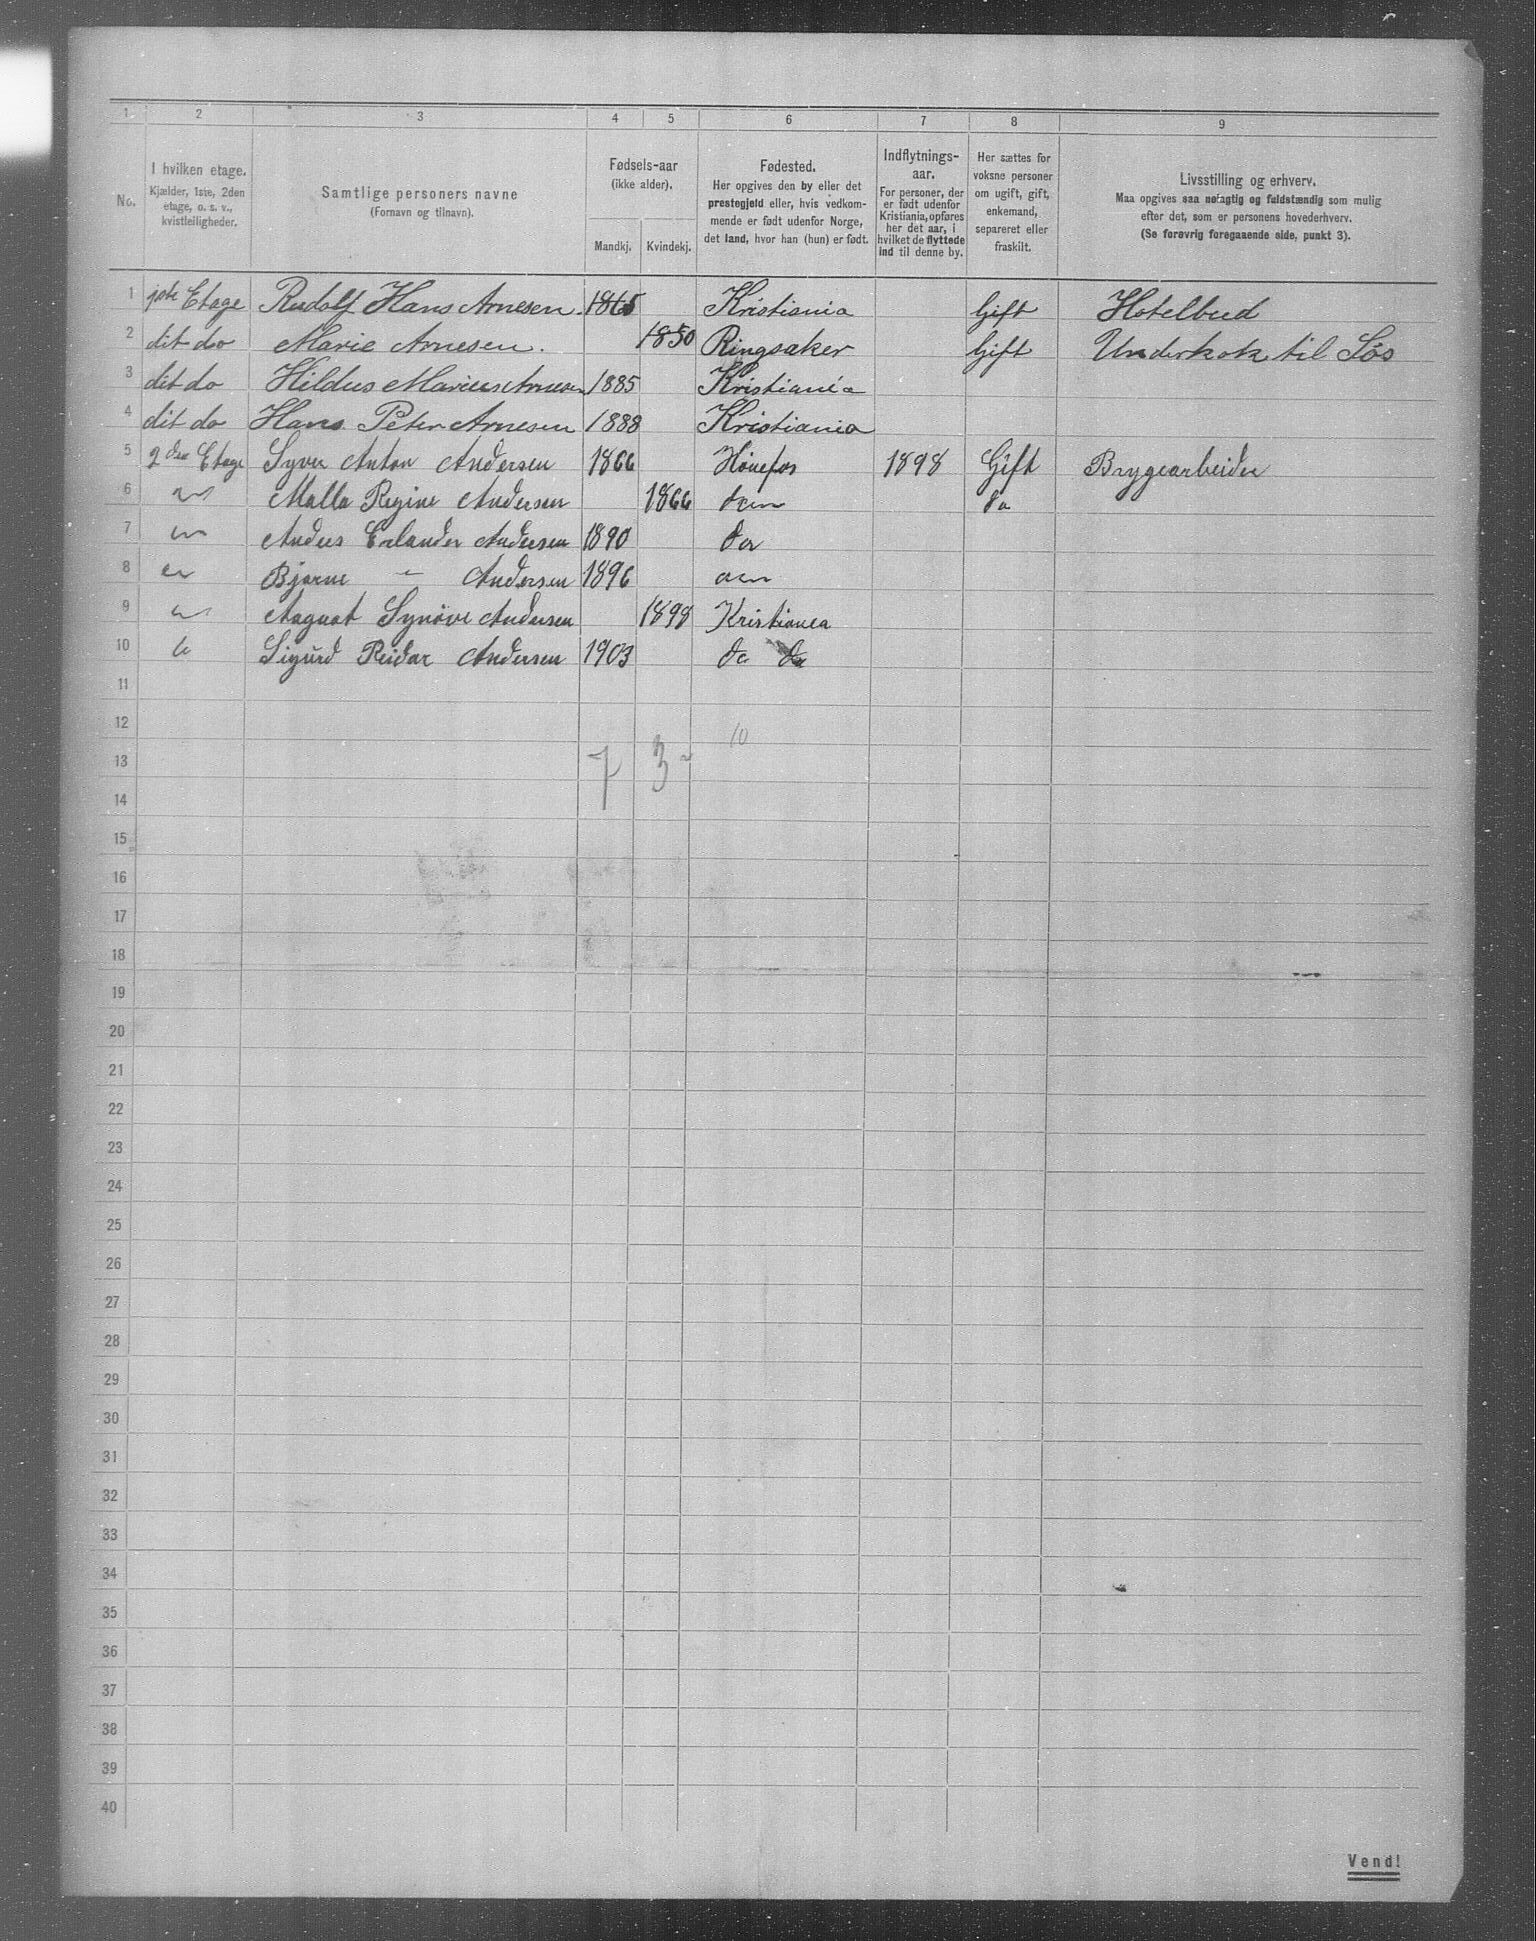 1 2 3 4 5 6 7 8 9
No.
I hvilken etage.
Kjælder, 1ste, 2den
etage, o. s. v.,
kvistleiligheder.
Samtlige personers navne
(Fornavn og tilnavn).
Fødsels-aar
(ikke alder).
Mandkj. Kvindekj.
Fødested.
Her opgives den by eller det
prestegjeld eller, hvis vedkom-
mende er født udenfor Norge,
det land, hvor han (hun) er født.
Indflytnings-
aar.
For personer, der
er født udenfor
Kristiania, opføres
her det aar, i
hvilket de flyttede
ind til denne by.
Her sættes for
voksne personer
om ugift, gift,
enkemand,
separeret eller
fraskilt.
Livsstilling og erhverv.
Maa opgives saa nøiagtig og fuldstændig som mulig
efter det, som er personens hovederhverv.
(Se forøvrig foregaaende side, punkt 3).
1 1ste Etage Rudolf Hans Arnesen 1865 Kristiania Gift Hotelbud
2 dit do Marie Arnesen. 1850 Ringsaker Gift Underkok til Søs
3 dit do Hildus Marius Arnesen 1885 Kristiania
4 dit do Hans Peter Arnesen 1888 Kristiania
5 2den Etage Syver Anton Andersen 1866 Hönefos 1898 Gift Brygearbeider
6 Malla Regine Andersen 1866 do
7 Anders Erlander Andersen 1890
8 Bjarne Andersen 1896
9 Aagnot Synöve Andersen 1898 Kristiania
10 Sigurd Reidar Andersen 1903 do do
11
12 10
13 7 3
14
15
16
17
18
19
20
21
22
23
24
25
26
27
28
29
30
31
32
33
34
35
36
37
38
39
40
Vend!